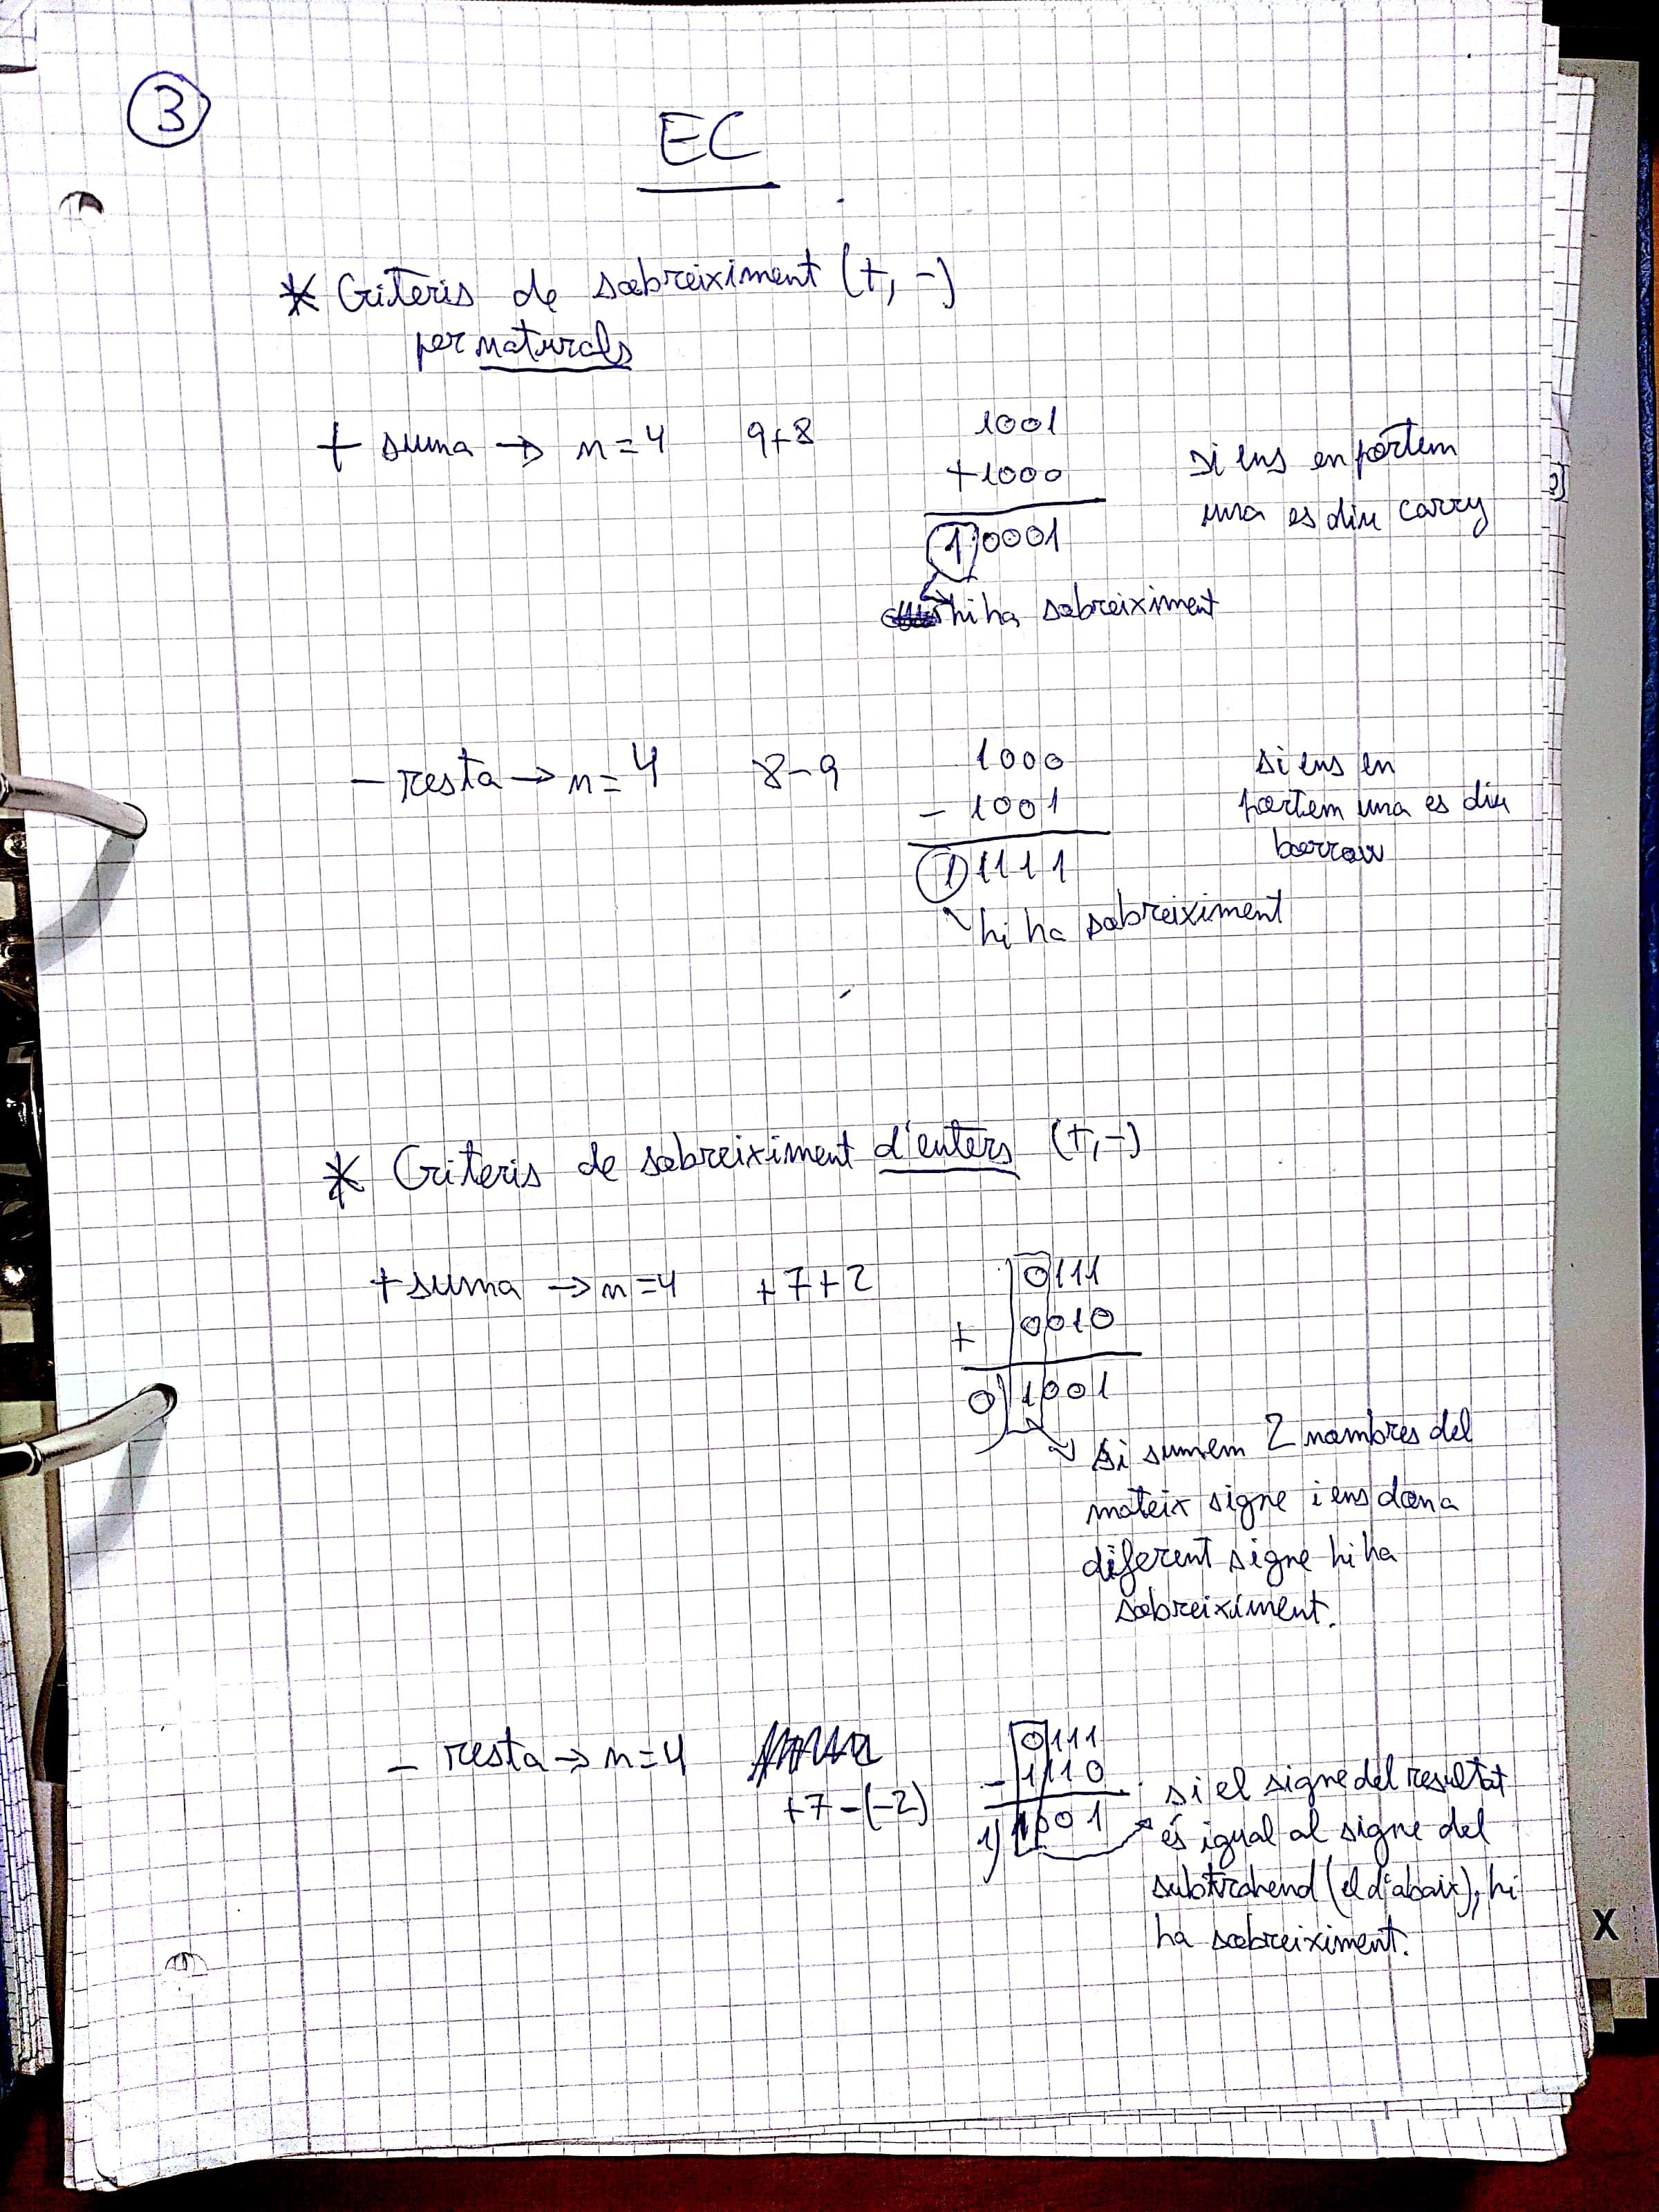 3
EC
* Criteris de sobreiximent (+, -)
per naturals
+ suma → n=4 9+8
1001
+1000
1 0001
hi ha sobreiximent
si ens en portem
una es diu carry
- resta → n=4 8-9
1000
- 1001
1 1111
hi ha sobreiximent
si ens en
portem una es diu
borrow
* Criteris de sobreiximent d'enters (+,-)
+ suma → n=4 +7+2
0111
+ 0010
0) 1001
si sumem 2 nombres del
mateix signe i ens dona
diferent signe hi ha
sobreiximent.
- resta → n=4
+7-(-2)
0111
- 1110
1) 1001
si el signe del resultat
és igual al signe del
substrahend (el d'abaix), hi
ha sobreiximent.
X